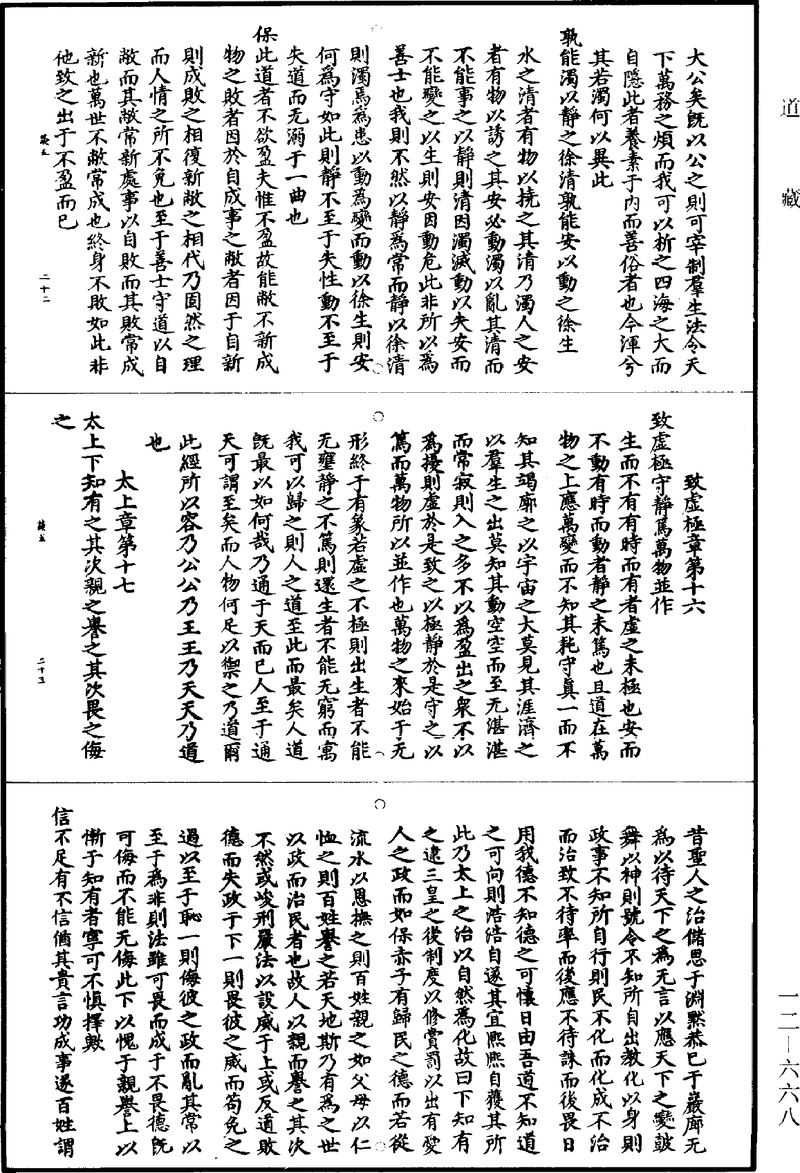 道藏
大公矣旣以公之則可宰制羣生法令天
下萬務之煩而我可以析之四海之大而
自隱此者養素于內而善俗者也今渾兮
其若濁何以異此
孰能濁以靜之徐清孰能安以動之徐生
水之清者有物以撓之其清乃濁人之安
者有物以誘之其安必動濁以亂其清而
不能事之以靜則清因濁滅動以失安而
不能變之以生則安因動危此非所以爲
善士也我則不然以靜爲常而靜以徐清
則濁焉爲患以動爲變而動以徐生則安
何爲守如此則靜不至于失性動不至于
失道而无溺于一曲也
保此道者不欲盈夫惟不盈故能敝不新成
物之敗者因於自成事之敝者因于自新
則成敗之相復新敝之相代乃固然之理
而人情之所不免也至于善士守道以自
敝而其敝常新處事以自敗而其敗常成
新也萬世不敝常成也終身不敗如此非
他致之出于不盈而已
二十二
致虛極章第十六
致虛極守靜篤萬物並作
生而不有有時而有者虛之未極也安而
不動有時而動者靜之未篤也且道在萬
物之上應萬變而不知其耗守眞一而不
知其竭廓之以宇宙之大莫見其涯濟之
以羣生之出莫知其動空空而至无湛湛
而常寂則入之多不以爲盈出之衆不以
爲擾則虛於是致之以極靜於是守之以
篤而萬物所以並作也萬物之來始于无
形終于有象若虛之不極則出生者不能
无壅靜之不篤則還生者不能无窮而寓
我可以歸之則人之道至此而最矣人道
旣最以如何哉乃通于天而已人至于通
天可謂至矣而人物何足以禦之乃道爾
此經所以容乃公公乃王王乃天天乃道
也
太上章第十七
太上下知有之其次親之譽之其次畏之侮
之
二十三
昔聖人之治儲思于淵黙恭已于巖廊无
爲以待天下之爲无言以應天下之變鼓
舞以神則號令不知所自出教化以身則
政事不知所自行則民不化而化成不治
而治致不待率而後應不待誅而後畏日
用我德不知德之可懷日由吾道不知道
之可向則浩浩自遂其宜熙熙自獲其所
此乃太上之治以自然爲化故曰下知有
之逮三皇之後制度以修賞罰以出有愛
人之政而如保赤子有歸民之德而若從
流水以恩撫之則百姓親之如父母以仁
恤之則百姓譽之若天地斯乃有爲之世
以政而治民者也故人以親而譽之其次
不然或峻刑嚴法以設威于上或反道敗
德而失政于下一則畏彼之威而苟免之
過以至于恥一則侮彼之政而亂其常以
至于爲非則法雖可畏而成于不畏德旣
可侮而不能无侮此下以愧于親譽上以
慚于知有者寧可不慎擇歟
信不足有不信猶其貴言功成事遂百姓謂
一二—六六八